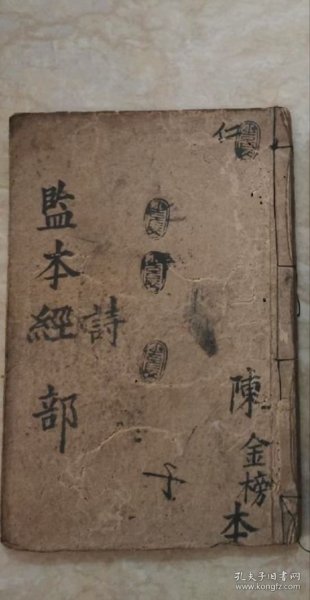 仁
陳金榜本
子
詩
監本經部
孔夫子旧书网